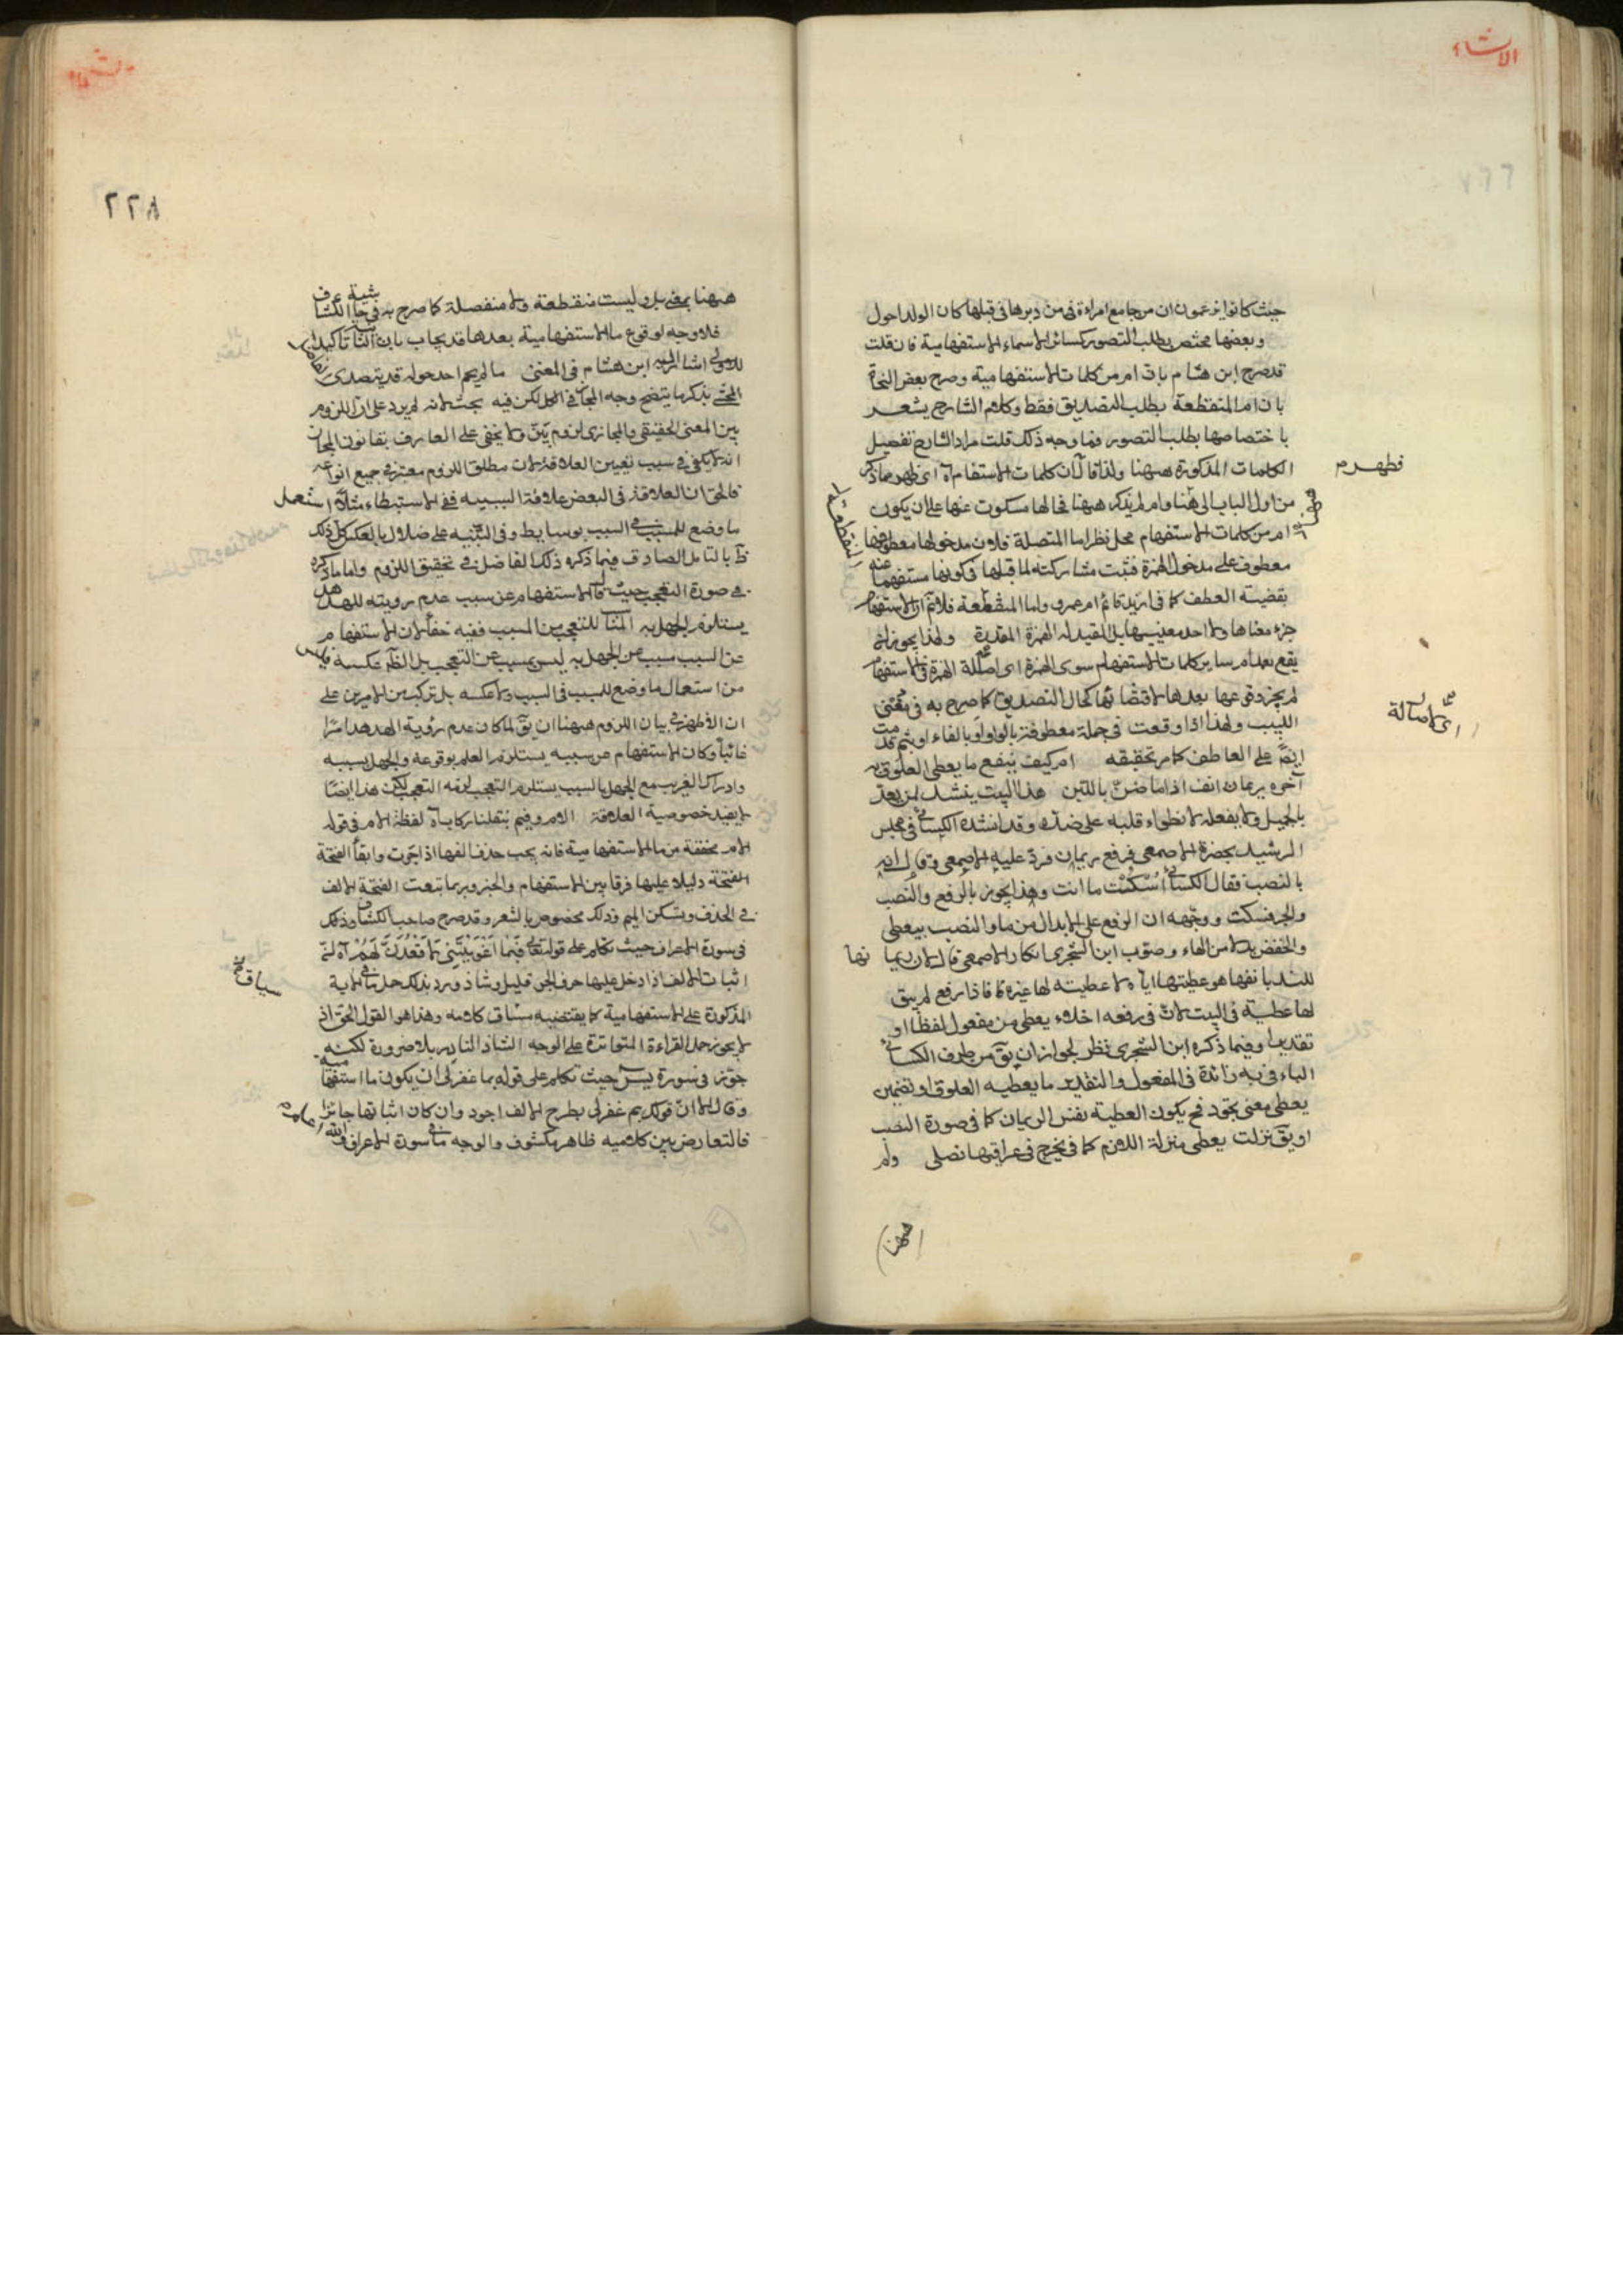 الانشاء
حيث كانوا يزعمون ان من جامع امراءة في من دبرها في قبلها كان الولد احول
وبعضها مختص بطلب التصور كسائر الاسماء الاستفهامية فان قلت
قد صرح ابن هشام بان ام من كلمات الاستفهامية وصرح بعض النحاة
بان ام المنقطعة بطلب التصديق فقط وكلام الشارح يشعر
باختصاصها بطلب التصور فما وجه ذلك قلت مراد الشارح تفصيل
الكلمات المذكورة ههنا ولذا قال ان كلمات الاستفهام اه اى ظهر مما ذكر
من اول الباب الى هنا وام لم يذكر ههنا فحالها مسكوت عنها على ان يكون
ام من كلمات الاستفهام محل نظر اما المتصلة فلان مدخولها معطوفها
معطوف على مدخول الهمزة فثبت مشاركته لما قبلها في كونها مستفهما عنه
بقضية العطف كما في ازيد قائم ام عمرو واما المنقطعة فلانم ان الاستفهام
جزء معناها ولا احد معنييها بل المفيد له الهمزة المقدرة ولهذا يجوز ان
يقع بعد ام سائر كلمات الاستفهام سوى الهمزة اى اصالة الهمزة في الاستفهام
لم يجز وقوعها بعدها لاقتضائها كمال التصديق كما صرح به في مغنى
اللبيب ولهذا اذا وقعت في جملة معطوفة بالواو او بالفاء او بثم قدمت
ايضا على العاطف كما مر تحقيقه ام كيف ينفع ما يعطى العلوق به
آخره ريمان انف اذا ما ضن باللبن هذا البيت ينشد لمن يعد
بالجميل ولا يفعله لانطواء قلبه على ضده وقد انشده الكسائي في مجلس
الرشيد بحضرة الاصمعي فرفع ريمان فرد عليه الاصمعي وقال انه
بالنصب فقال الكسائي اسكت ما انت وهذا يجوز بالرفع والنصب
والجر فسكت ووجهه ان الرفع على الابدال من ما والنصب بيعطى
والخفض بدلا من الهاء وصوب ابن الشجرى انكار الاصمعي قال لان ريمانها
للبو بانفها هو عطيتها اياه لا عطيته لها غيره فاذا رفع لم يبق
لها عطية في البيت لان في رفعه اخلاء يعطى من مفعول لفظا او
تقديرا وفيما ذكره ابن الشجرى نظر لجواز ان يق من طرف الكسائي
الباء في به زائدة في المفعول والتقدير ما يعطيه العلوق او تضمين
يعطى معنى يجود فح يكون العطية نفس الريمان كما في صورة النصب
او يق نزلت يعطى منزلة اللازم كما في يجرح في عراقيبها نصلى ولم
فظهر م
اى اصالة
ههنا
٢٢٨
ههنا بمعنى بل وليست منقطعة ولا منفصلة كما صرح به في حاشية الكشاف
فلا وجه لوقوع ما الاستفهامية بعدها قد يجاب بان الثانية تأكيد
للاولى اشار اليه ابن هشام في المغنى ما لم يحم احد حوله قد يتصدى
المحشى بذكر ما يتضح وجه المجاز في الكل لكن فيه بحث لانه لم يرد على ان اللزوم
بين المعنى الحقيقى والمجازى لزوم بين ولا يخفى على العارف بقانون المجاز
انه لا يكفى في سبب تعيين العلاقة لان مطلق اللزوم معتبر في جميع انواعه
فالحق ان العلاقة في البعض علاقة السببية ففي الاستبطاء مثلا استعمل
ما وضع للمسبب في السبب بوسايط وفي التنبيه على ضلال بالعكس كل ذلك
ظ بالتامل الصادق فيما ذكره ذلك الفاضل في تحقيق اللزوم واما ما ذكره
في صورة التعجب حيث قال الاستفهام عن سبب عدم رويته للهدهد
يستلزم الجهل به المناسب للتعجب من المسبب ففيه خفاء لان الاستفهام
عن السبب مسبب عن الجهل به ليس بمسبب عن التعجب بل الظ عكسه فليس
من استعمال ما وضع للسبب في السبب ولا عكسه بل تركب من الامرين على
ان الاظهر في بيان اللزوم ههنا ان يق لما كان عدم رؤية الهدهد امرا
غائبا وكان الاستفهام عن سببه يستلزم العلم بوقوعه والجهل بسببه
وادراك الغريب مع الجهل بالسبب يستلزم التعجب لزمه التعجب لكن هذا ايضا
لا يفيد خصوصية العلاقة الام وفيم ينقلنا ركاب اه لفظة الام في قوله
الام مخففة من ما الاستفهامية فانه يجب حذف الفها اذا جرت وابقاء الفتحة
الفتحة دليلا عليها فرقا بين الاستفهام والخبر وربما تبعت الفتحة الالف
في الحذف وتسكن الميم وذلك مخصوص بالشعر وقد صرح صاحب الكشاف وذلك
في سورة الاعراف حيث تكلم على قوله تعالى فبما اغويتني لاقعدن لهم اه ان
اثبات الالف اذا دخل عليها حرف الجر قليل وشاذ ورد بذلك حمل ما في الاية
المذكورة على الاستفهامية كما يقتضيه مساق كلامه وهذا هو القول الحق اذ
لا يجوز حمل القراءة المتواترة على الوجه الشاذ النادر بلا ضرورة لكنه
جوز في سورة يس حيث تكلم على قوله بما غفر لى ان يكون ما استفهامية
وقال الا ان قولك بم غفر لى بطرح الالف اجود وان كان اثباتها جائزا
فالتعارض بين كلاميه ظاهر مكشوف والوجه ما في سورة الاعراف والله اعلم
سياق